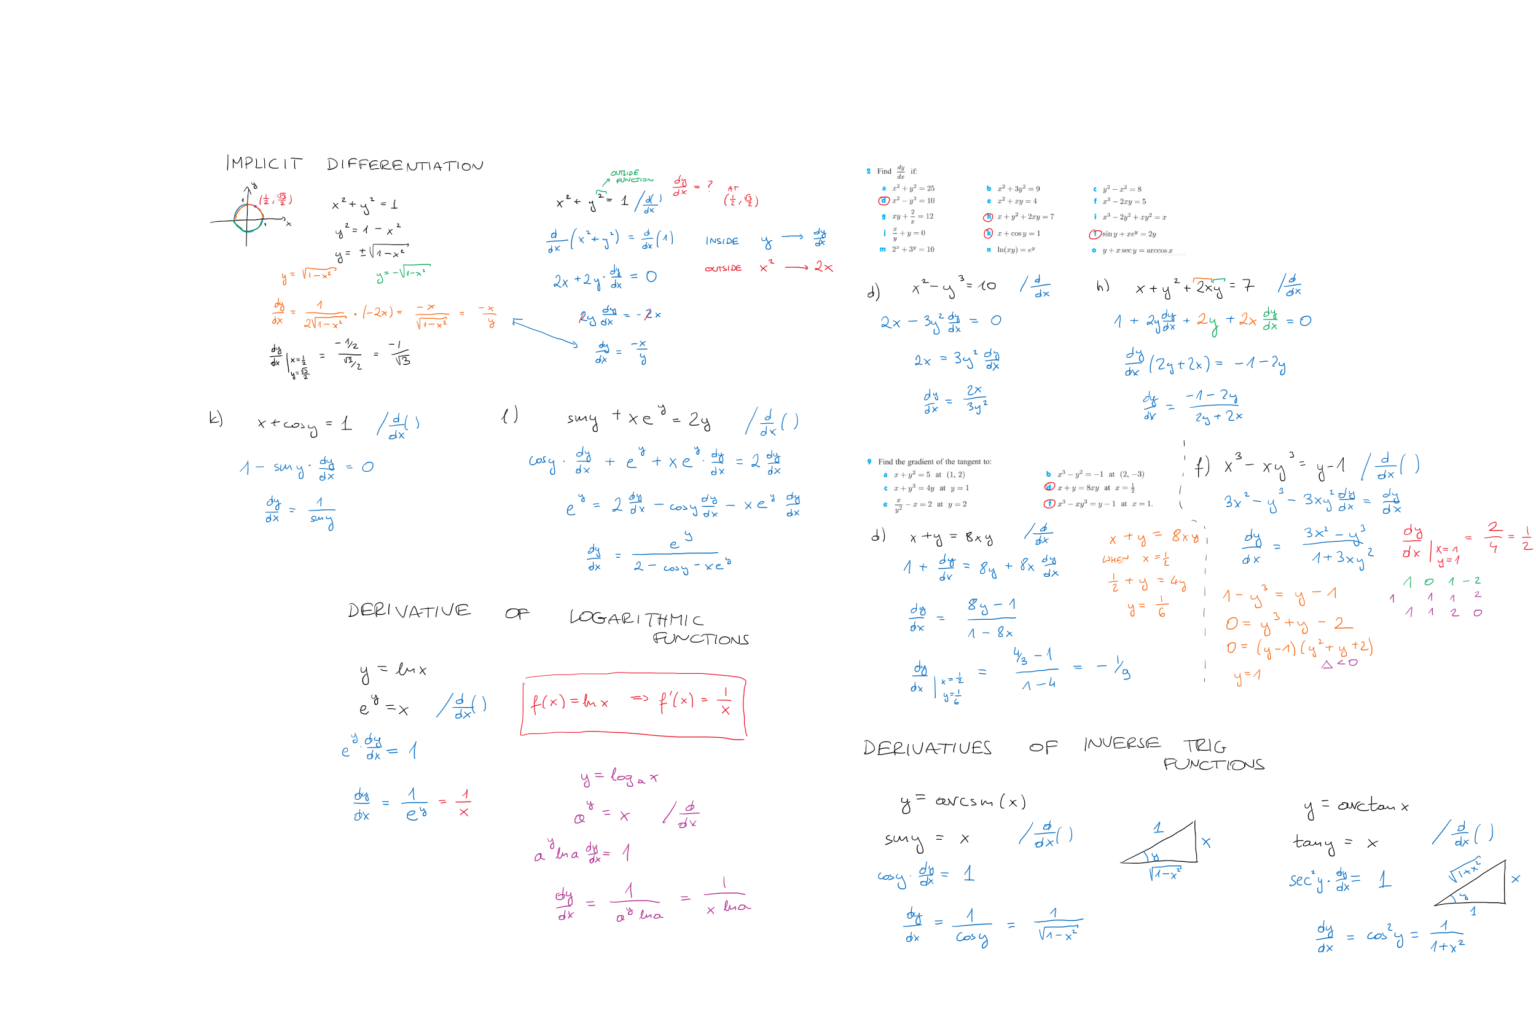 IMPLICIT DIFFERENTIATION
y
(1/2, √3/2)
x
x² + y² = 1
y² = 1 - x²
y = ±√(1-x²)
y = √(1-x²)   y = -√(1-x²)
dy/dx = 1/(2√(1-x²)) · (-2x) = -x/√(1-x²) = -x/y
dy/dx | x=1/2 y=√3/2 = (-1/2)/(√3/2) = -1/√3
OUTSIDE FUNCTION
x² + y² = 1 / d/dx()   dy/dx = ?   AT (1/2, √3/2)
d/dx (x² + y²) = d/dx (1)
INSIDE y → dy/dx
OUTSIDE x² → 2x
2x + 2y · dy/dx = 0
2y dy/dx = -2x
dy/dx = -x/y
2 Find dy/dx if:
a x² + y² = 25   b x² + 3y² = 9   c y² - x² = 8
d x² - y³ = 10   e x² + xy = 4   f x³ - 2xy = 5
g xy + 2/x = 12   h x + y² + 2xy = 7   i x³ - 2y² + xy² = x
j x/y + y = 0   k x + cos y = 1   l sin y + xe^y = 2y
m 2^x + 3^y = 10   n ln(xy) = e^y   o y + x sec y = arccos x
d) x² - y³ = 10 / d/dx
2x - 3y² dy/dx = 0
2x = 3y² dy/dx
dy/dx = 2x/3y²
h) x + y² + 2xy = 7 / d/dx
1 + 2y dy/dx + 2y + 2x dy/dx = 0
dy/dx (2y + 2x) = -1 - 2y
dy/dx = (-1 - 2y)/(2y + 2x)
k) x + cosy = 1 / d/dx()
1 - siny · dy/dx = 0
dy/dx = 1/siny
l) siny + xe^y = 2y / d/dx()
cosy · dy/dx + e^y + xe^y · dy/dx = 2 dy/dx
e^y = 2 dy/dx - cosy dy/dx - xe^y dy/dx
dy/dx = e^y/(2 - cosy - xe^y)
9 Find the gradient of the tangent to:
a x + y² = 5 at (1, 2)   b x³ - y² = -1 at (2, -3)
c x + y³ = 4y at y = 1   d x + y = 8xy at x = 1/2
e x/y² - x = 2 at y = 2   f x³ - xy³ = y - 1 at x = 1.
d) x + y = 8xy / d/dx
1 + dy/dx = 8y + 8x dy/dx
dy/dx = (8y - 1)/(1 - 8x)
dy/dx | x=1/2 y=1/6 = (4/3 - 1)/(1 - 4) = -1/9
x + y = 8xy
WHEN x = 1/2
1/2 + y = 4y
y = 1/6
f) x³ - xy³ = y - 1 / d/dx()
3x² - y³ - 3xy² dy/dx = dy/dx
dy/dx = (3x² - y³)/(1 + 3xy²)
dy/dx | x=1 y=1 = 2/4 = 1/2
1 - y³ = y - 1
0 = y³ + y - 2
0 = (y-1)(y² + y + 2)
Δ < 0
y = 1
1 0 1 -2
1 1 1 2
1 1 2 0
DERIVATIVE OF LOGARITHMIC FUNCTIONS
y = lnx
e^y = x / d/dx()
e^y · dy/dx = 1
dy/dx = 1/e^y = 1/x
f(x) = lnx ⇒ f'(x) = 1/x
y = logₐx
a^y = x / d/dx
a^y lna dy/dx = 1
dy/dx = 1/(a^y lna) = 1/(x lna)
DERIVATIVES OF INVERSE TRIG FUNCTIONS
y = arcsin(x)
siny = x / d/dx()
cosy · dy/dx = 1
dy/dx = 1/cosy = 1/√(1-x²)
1
x
y
√(1-x²)
y = arctanx
tany = x / d/dx()
sec²y · dy/dx = 1
dy/dx = cos²y = 1/(1+x²)
√(1+x²)
x
y
1